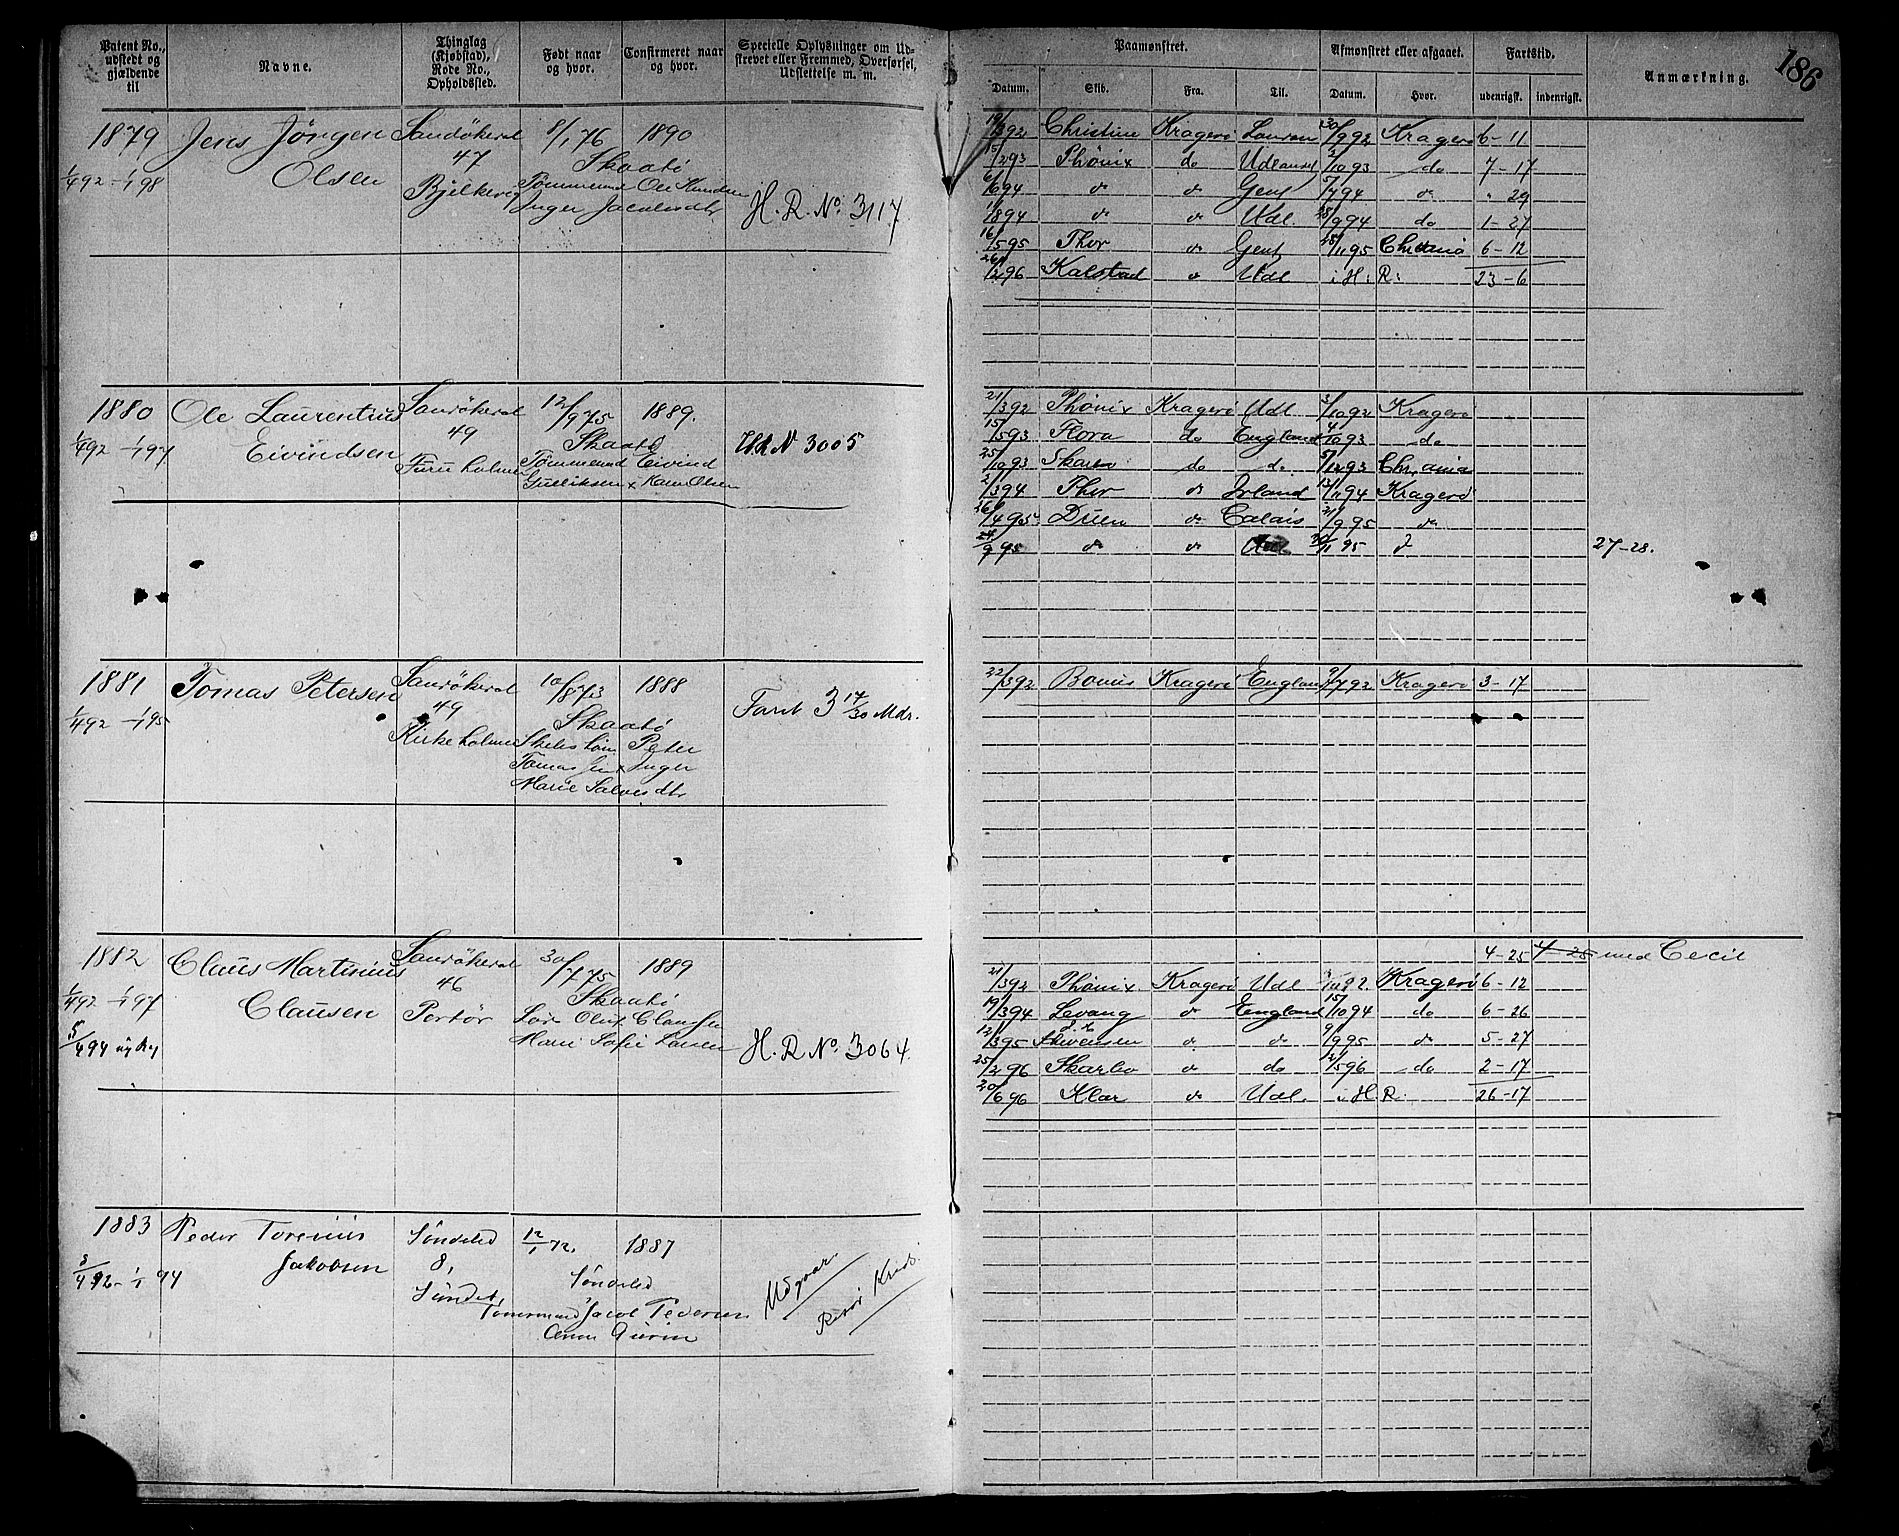 Patent No., udstedt og gjældende til | Navne. | Thinglag (Kjøbstad), Rode No., Opholdssted. | Født naar og hvor. | Confirmeret naar og hvor. | Specielle Oplysninger om Udstrevet eller Fremmed, Overførsel, Udslettelse m. m.
Paamønstret. | Afmønstret eller afgaaet. | Fartstid. | Anmærkning. | 186
Datum. | Skib. | Fra. | Til. | Datum. | Hvor. | udenrigsk. | indenrigsk.
1879 Jens Jörgen Sandökedal 8/1 76 1890
Olsen 47 Skaatö
1/4 92 - 1/1 98 Bjelkevig Tömmermand Ole Knudsen
Inger Jacobsdtr H. R. No. 3117.
19/3 92 Christine Kragerö 30/9 92 Kragerö 6-11
15/2 93 Phönix do Udlandet 2/10 93 do 7-17
6/6 94 do do Gent 5/7 94 do " 29
1/8 94 do do Udl. 28/9 94 do 1-27
16/5 95 Thor do Gent 25/11 95 Chr.ania 6-12
26/2 96 Kalstad do Udl i H: R: 23-6
1880 Ole Laurentius Sandökedal 12/9 75 1889.
Eivindsen 49 Skaatö
1/4 92 - 1/1 97 Furuholmen Tömmermand Eivind
Gulliksen x Karen Olsen
H R N 3005
21/3 92 Phönix Kragerö Udl 3/10 92 Kragerö
15/5 93 Flora do England 4/10 93 do
25/10 93 Skarbo do do 5/12 93 Chr.ania
2/3 94 Thor do Irland 13/11 94 Kragerö
26/4 95 Duen do Calais 21/9 95 do
24/9 95 do do Udl 30/11 95 27-28.
1881 Tomas Petersen Sandökedal 10/8 73 1888
49 Skaatö
1/4 92 - 1/1 95 Kirkeholmen Peter
Tomas x Inger
Marie Salvesdtr
Faret 3 17/30 Mdr.
22/3 92 Bonus Kragerö England 9/7 92 Kragerö 3-17
1882 Claus Martinius Sandökedal 30/7 75 1889
Clausen 46 Skaatö
1/4 92 - 1/1 97 Portör Olaf Clausen
Marie Sofie Larsen
H. R. No. 3064.
4-25 4-25 med Cecil
21/3 92 Phönix Kragerö Udl Kragerö 6-12
19/3 94 Levang do England 15/10 94 do 6-26
12/3 95 do do 9/9 95 do 5-27
25/2 96 Skarbo do do 21/5 96 do 2-17
20/6 96 Klar do Udl. i H. R. 26-17
1883 Peder Torenius Söndeled 12/1 72. 1887
Jakobsen 8, Söndeled
3/4 92 - 1/1 94 Sundet, Tömmermand Jacob Pedersen
Anne Gurine
Udgaar
Risör Krids.